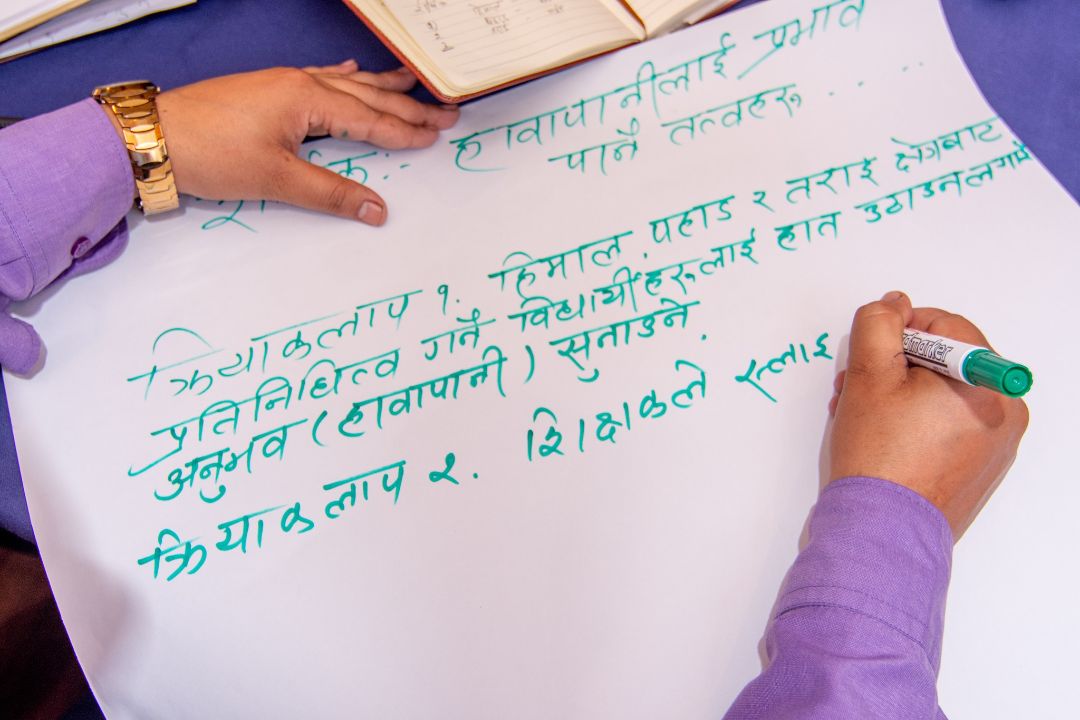 शीर्षक:- हावापानीलाई प्रभाव
पार्ने तत्वहरू . . . .
क्रियाकलाप १. हिमाल, पहाड र तराई क्षेत्रबाट
प्रतिनिधित्व गर्ने विद्यार्थीहरूलाई हात उठाउन लगाई
अनुभव (हावापानी) सुनाउने.
क्रियाकलाप २. शिक्षकले स्लाइ
marker